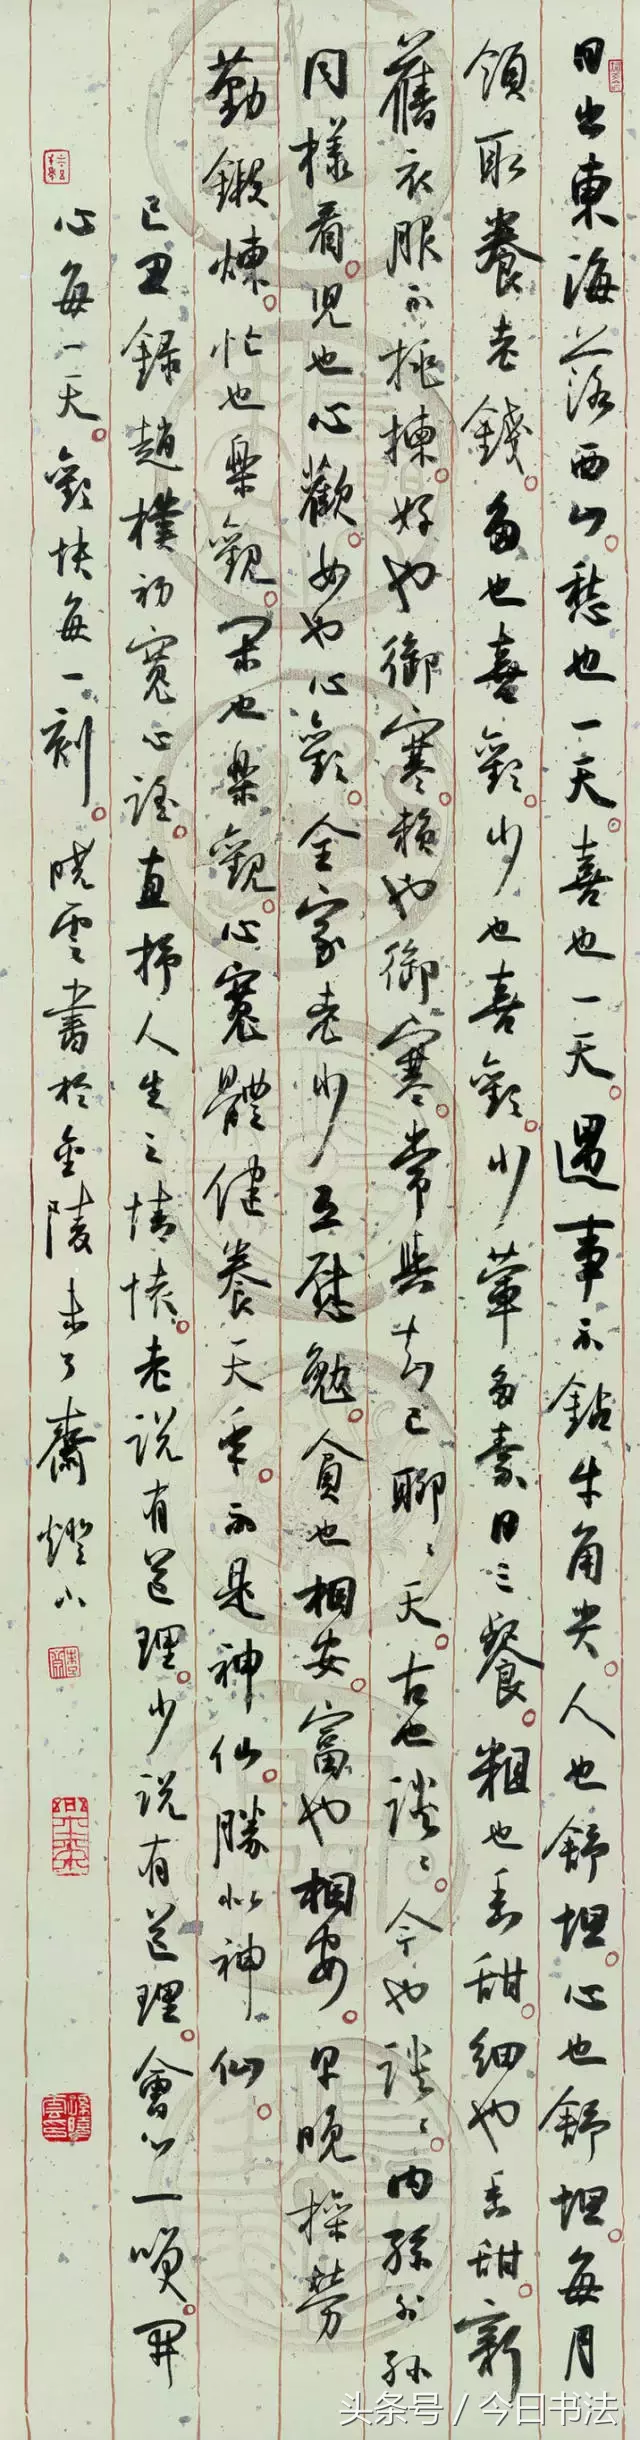 日出東海落西山。愁也一天。喜也一天。遇事不鉆牛角尖。人也舒坦。心也舒坦。每月
領取養老錢。多也喜歡。少也喜歡。少葷多素日三餐。粗也香甜。細也香甜。新
舊衣服不挑揀。好也御寒。賴也御寒。常與知己聊聊天。古也談談。今也談談。内孫外孫
同樣看。兒也心歡。女也心歡。全家老少互慰勉。貧也相安。富也相安。早晚操勞
勤鍛煉。忙也樂觀。閑也樂觀。心寬體健養天年。不是神仙。勝似神仙。
己丑錄趙樸初寬心謠。直抒人生之情懷。老說有道理。少說有道理。會心一哭開
心每一天。歡快每一刻。曉雲書於金陵未了齋燈下
头条号 / 今日书法